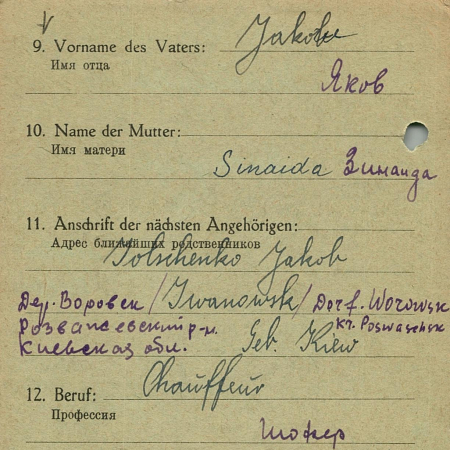 9. Vorname des Vaters: Jakow
Имя отца
Яков
10. Name der Mutter:
Имя матери
Sinaida Зинаида
11. Anschrift der nächsten Angehörigen:
Адрес ближайших родственников
Tolschenko Jakob
Дер. Воровск / Iwanowsk / Dorf. Worowsk
Розважевский р-н. kr. Roswaschsk
Киевская обл. Geb. Kiew
12. Beruf: Chauffeur
Профессия
Шофер